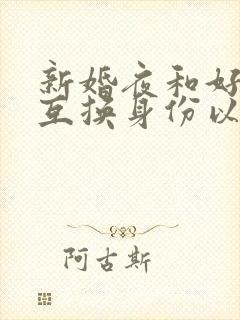 新婚夜和好
互换身份以
阿古斯